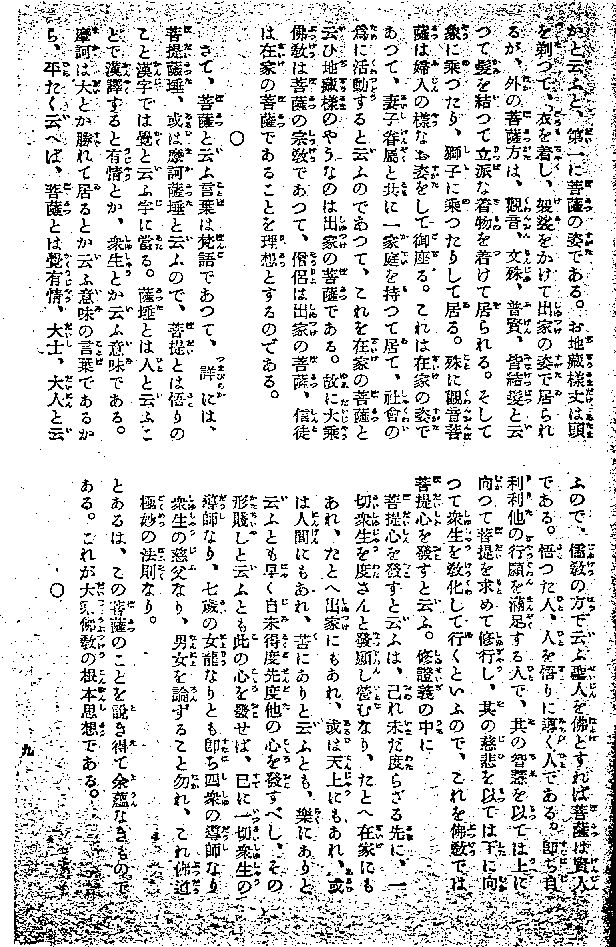 かと云ふと、第一に菩薩の姿である。お地藏樣丈は頭
を剃つて、衣を着し、袈裟をかけて出家の姿で居られ
るが、外の菩薩方は、觀音、文殊、普賢、皆結髮と云
つて髮を結つて立派な着物を着けて居られる。そして
象に乘つたり、獅子に乘つたりして居る。殊に觀音菩
薩は婦人の樣なお姿をして御座る。これは在家の姿で
あつて、妻子眷屬と共に一家庭を持つて居て、社會の
爲に活動すると云ふのであつて、これを在家の菩薩と
云ひ地藏樣のやうなのは出家の菩薩である。故に大乘
佛敎は菩薩の宗敎であつて、僧侶は出家の菩薩、信徒
は在家の菩薩であることを理想とするのである。
○
さて、菩薩と云ふ言葉は梵語であつて、詳には、
菩提薩埵、或は摩訶薩埵と云ふので、菩提とは悟りの
こと漢字では覺と云ふ字に當る。薩埵とは人と云ふこ
とで漢譯すると有情とか、衆生とか云ふ意味である。
摩訶は大とか勝れて居るとか云ふ意味の言葉であるか
ら、平たく云へば、菩薩とは覺有情、大士、大人と云
ふので、儒敎の方で云ふ聖人を佛とすれば菩薩は賢人
である。悟つた人、人を悟りに導く人である。卽ち自
利利他の行願を滿足する人で、其の智慧を以ては上に
向つて菩提を求めて修行し、其の慈悲を以ては下に向
つて衆生を敎化して行くといふので、これを佛敎では
菩提心を發すと云ふ。修證義の中に
菩提心を發すと云ふは、己れ未だ度らざる先に、一
切衆生を度さんと發願し營むなり、たとへ在家にも
あれ、たとへ出家にもあれ、或は天上にもあれ、或
は人間にもあれ、苦にありと云ふとも、樂にありと
云ふとも早く自未得度先度他の心を發すべし、その
形賤しと云ふとも此の心を發せば、已に一切衆生の
導師なり、七歲の女龍なりとも卽ち四衆の導師なり
衆生の慈父なり、男女を論ずること勿れ、これ佛道
極妙の法則なり。
とあるは、この菩薩のことを說き得て余蘊なきもので
ある。これが大乘佛敎の根本思想である。
○
九